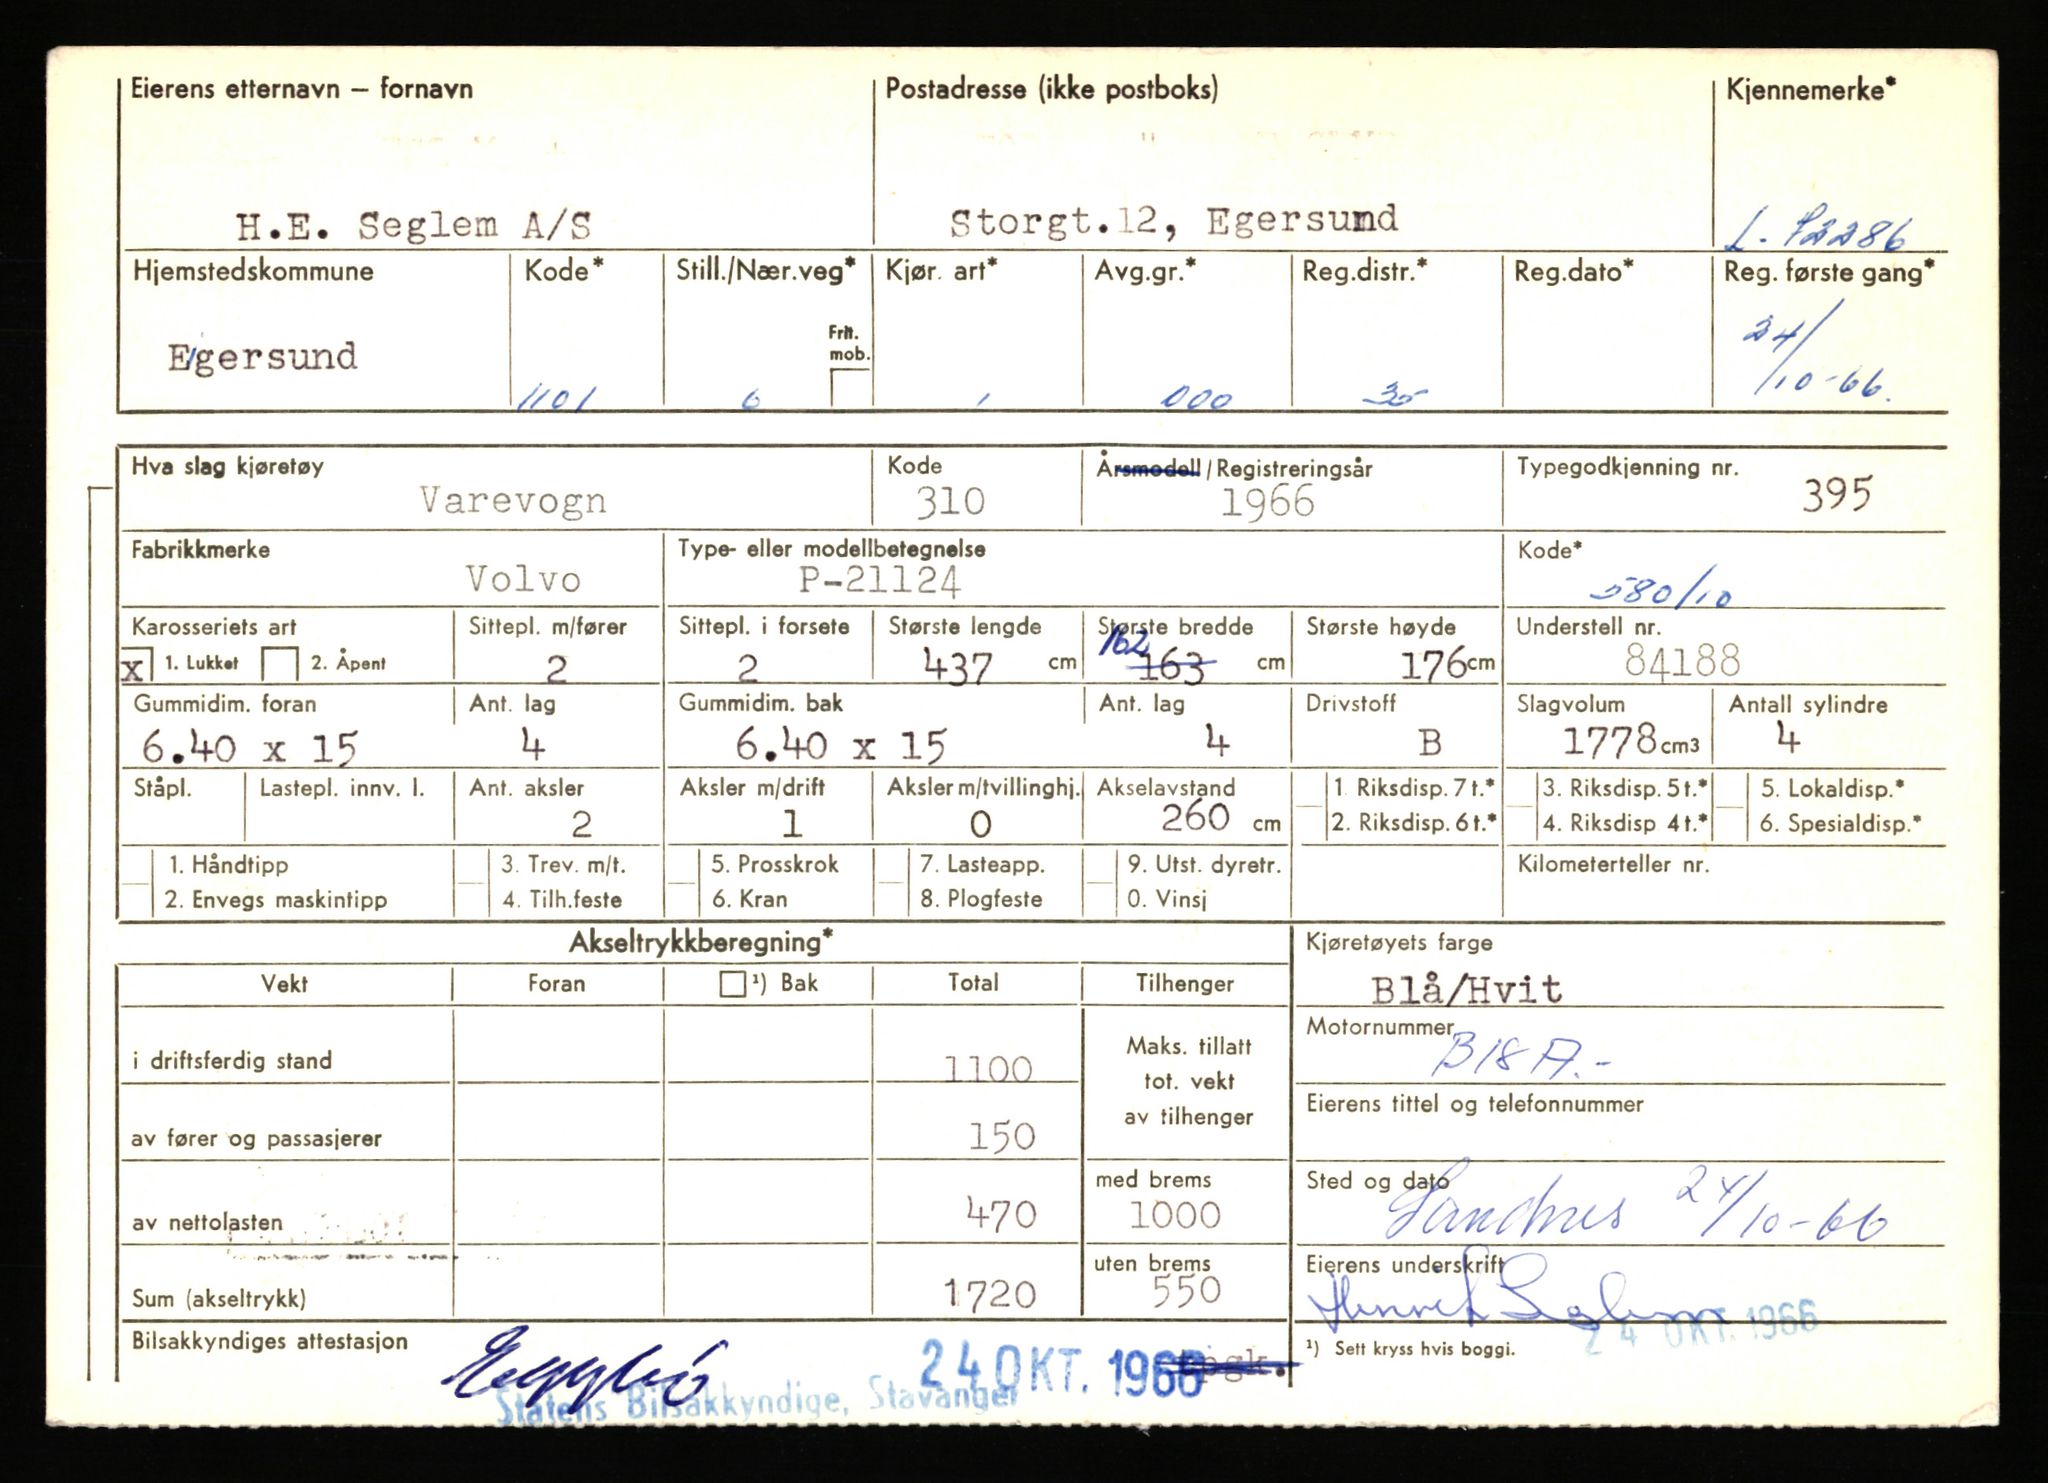 Eierens etternavn – fornavn Postadresse (ikke postboks) Kjennemerke*
H.E. Seglem A/S Storgt.12, Egersund L-72286
Hjemstedskommune Kode* Still./Nær.veg* Kjør. art* Avg.gr.* Reg.distr.* Reg.dato* Reg. første gang*
Frit. mob.
Egersund 1101 6 1 000 35 24/10-66.
Hva slag kjøretøy Kode Årsmodell/Registreringsår Typegodkjenning nr.
Varevogn 310 1966 395
Fabrikkmerke Type- eller modellbetegnelse Kode*
Volvo P-21124 580/10
Karosseriets art Sittepl. m/fører Sittepl. i forsete Største lengde Største bredde Største høyde Understell nr.
x 1. Lukket 2. Åpent 2 2 437 cm 162 163 cm 176cm 84188
Gummidim. foran Ant. lag Gummidim. bak Ant. lag Drivstoff Slagvolum Antall sylindre
6.40 x 15 4 6.40 x 15 4 B 1778cm3 4
Ståpl. Lastepl. innv. l. Ant. aksler Aksler m/drift Aksler m/tvillinghj. Akselavstand 1 Riksdisp. 7 t.* 3. Riksdisp. 5 t.* 5. Lokaldisp.*
2 1 0 260 cm 2. Riksdisp. 6 t.* 4. Riksdisp 4 t.* 6. Spesialdisp.*
1. Håndtipp 3. Trev. m/t. 5. Prosskrok 7. Lasteapp. 9. Utst. dyretr. Kilometerteller nr.
2. Envegs maskintipp 4. Tilh.feste 6. Kran 8. Plogfeste 0. Vinsj
Akseltrykkberegning* Kjøretøyets farge
Vekt Foran ¹) Bak Total Tilhenger Blå/Hvit
Motornummer
i driftsferdig stand 1100 Maks. tillatt tot. vekt av tilhenger B18A.-
Eierens tittel og telefonnummer
av fører og passasjerer 150
med brems Sted og dato
av nettolasten 470 1000 Sandnes 24/10-66
uten brems Eierens underskrift
Sum (akseltrykk) 1720 550 Henrik Seglem
24 OKT. 1966
Bilsakkyndiges attestasjon 24 OKT. 1966 ¹) Sett kryss hvis boggi.
Statens Bilsakkyndige, Stavanger